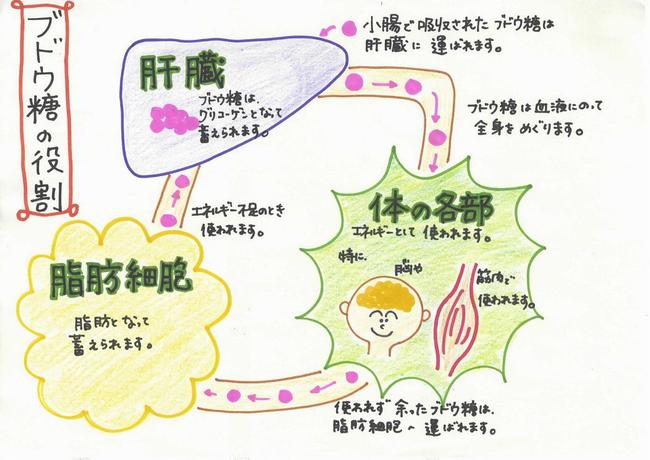 ブドウ糖の役割
小腸で吸収されたブドウ糖は
肝臓に運ばれます。
肝臓
ブドウ糖は、
グリコーゲンとなって
蓄えられます。
ブドウ糖は血液にのって
全身をめぐります。
体の各部
エネルギーとして使われます。
特に、
脳や
筋肉で
使われます。
エネルギー不足のとき
使われます。
脂肪細胞
脂肪となって
蓄えられます。
使われず余ったブドウ糖は、
脂肪細胞へ運ばれます。